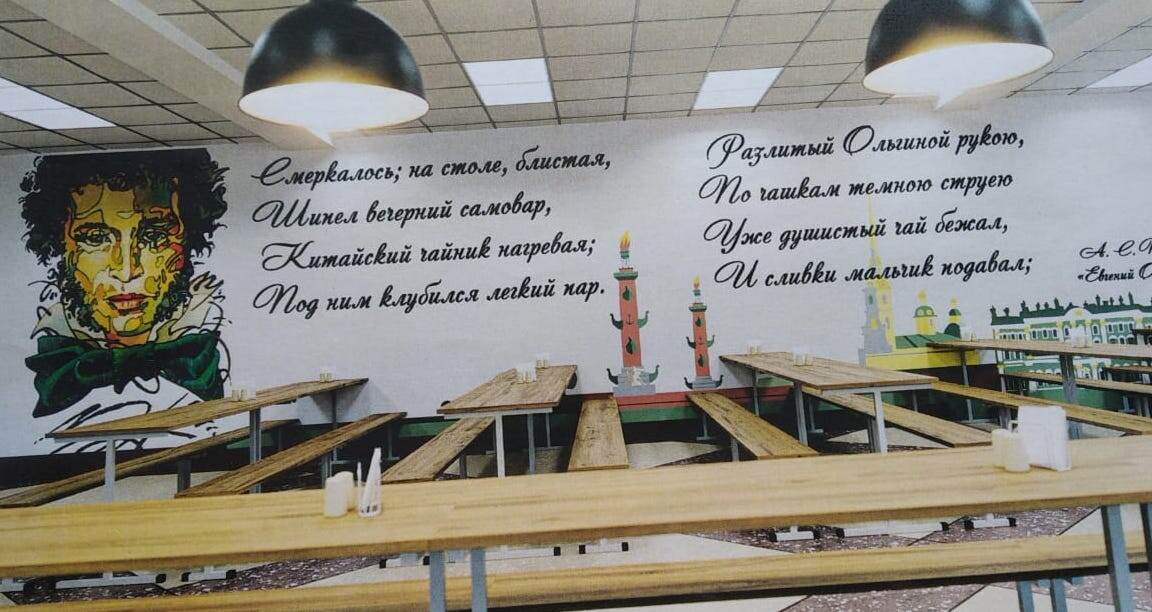 Смеркалось; на столе, блистая,
Шипел вечерний самовар,
Китайский чайник нагревая;
Под ним клубился легкий пар.
Разлитый Ольгиной рукою,
По чашкам темною струею
Уже душистый чай бежал,
И сливки мальчик подавал;
А. С.
«Евгений